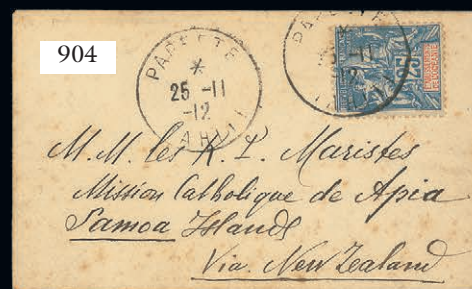 904
PAPEETE
*
25 -11
-12
TAHITI
PAPEETE
*
25 -11
-12
25
M. M. les R. P. Maristes
Mission Catholique de Apia
Samoa Islands
Via New Zealand